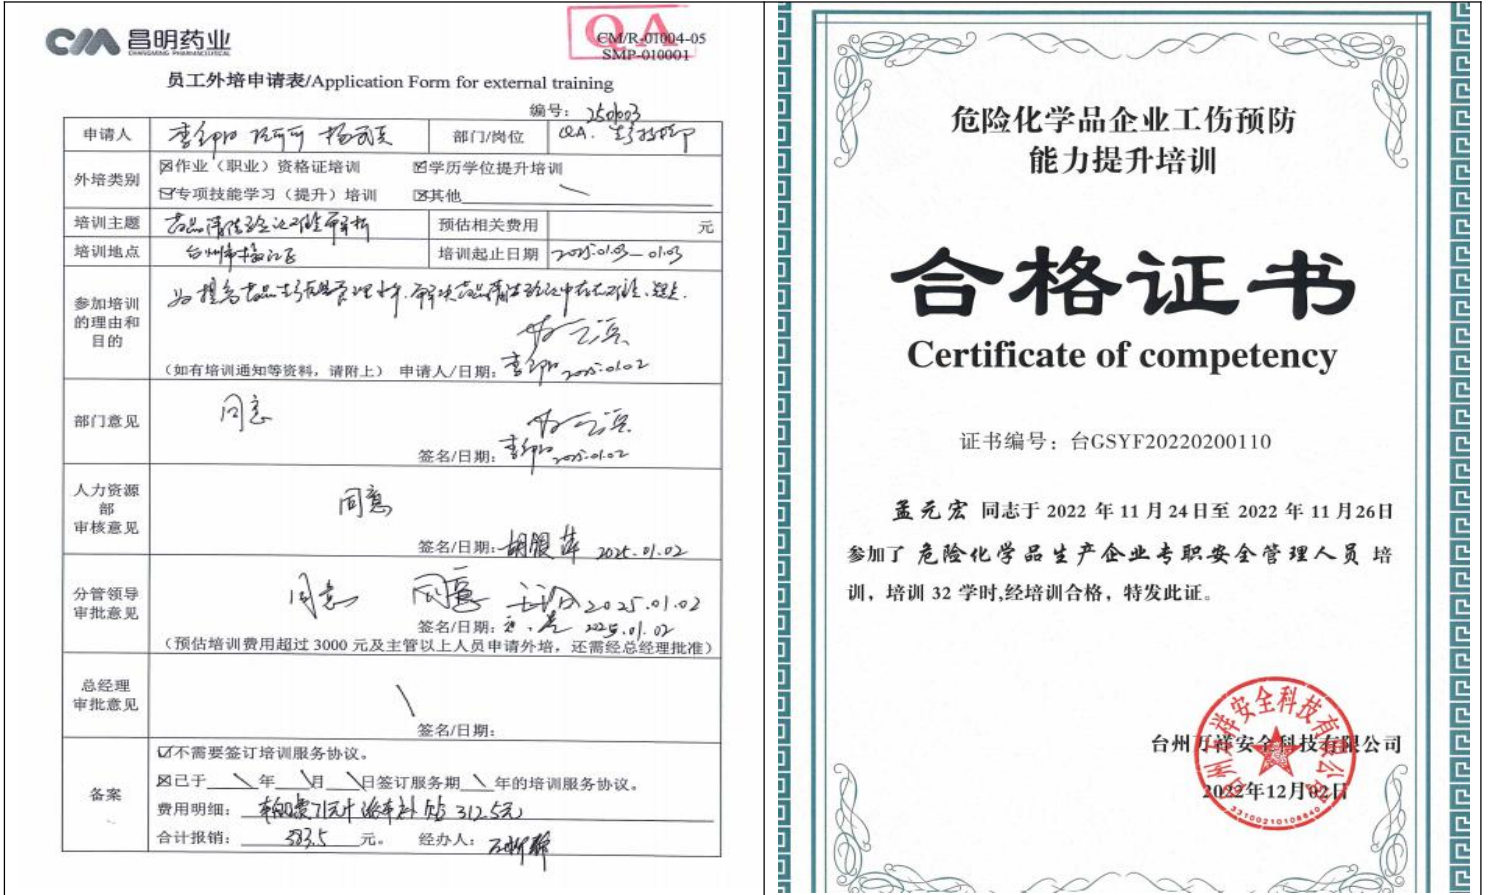 CM 昌明药业
CHANGMING PHARMACEUTICAL
QA
CM/R-01004-05
SMP-010001
员工外培申请表/Application Form for external training
编号: 250103
申请人
部门/岗位 QA.
外培类别 作业（职业）资格证培训 学历学位提升培训
专项技能学习（提升）培训 其他
培训主题 药品清洁验证难解析 预估相关费用 元
培训地点 台州市椒江区 培训起止日期 2025.01.03—01.03
参加培训的理由和目的
为提高药品生产质量管理水平,解决药品清洁验证中存在难、疑点.
（如有培训通知等资料，请附上） 申请人/日期: 2025.01.02
部门意见 同意
签名/日期: 2025.01.02
人力资源部审核意见 同意
签名/日期: 胡银萍 2025.01.02
分管领导审批意见 同意 同意 2025.01.02
签名/日期: 2025.01.02
（预估培训费用超过 3000 元及主管以上人员申请外培，还需经总经理批准）
总经理审批意见
签名/日期:
备案
不需要签订培训服务协议。
已于 年 月 日签订服务期 年的培训服务协议。
费用明细: 71元+ 车补贴 312.5元
合计报销: 383.5 元。 经办人:
危险化学品企业工伤预防
能力提升培训
合格证书
Certificate of competency
证书编号: 台GSYF20220200110
孟元宏 同志于 2022 年 11 月 24日至 2022 年 11 月26日
参加了 危险化学品生产企业专职安全管理人员 培
训，培训 32 学时,经培训合格，特发此证。
台州万祥安全科技有限公司
2022年12月02日
台州万祥安全科技有限公司
33100210108840